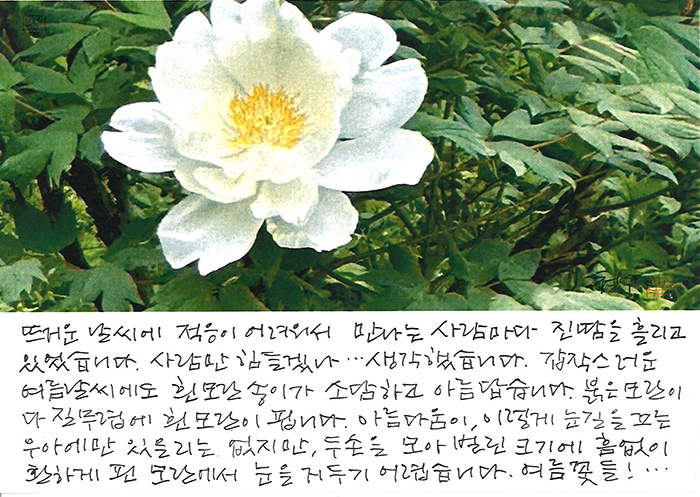 뜨거운 날씨에 적응이 어려워서 만나는 사람마다 진땀을 흘리고
있었습니다. 사람만 힘들겠나 … 생각했습니다. 갑작스러운
여름날씨에도 흰모란 송이가 소담하고 아름답습니다. 붉은모란이
다 질무렵에 흰모란이 핍니다. 아름다움이, 이렇게 눈길을 끄는
우아에만 있을리는 없지만, 두손을 모아 벌린 크기에 흠없이
환하게 핀 모란에서 눈을 거두기 어렵습니다. 여름꽃들! …